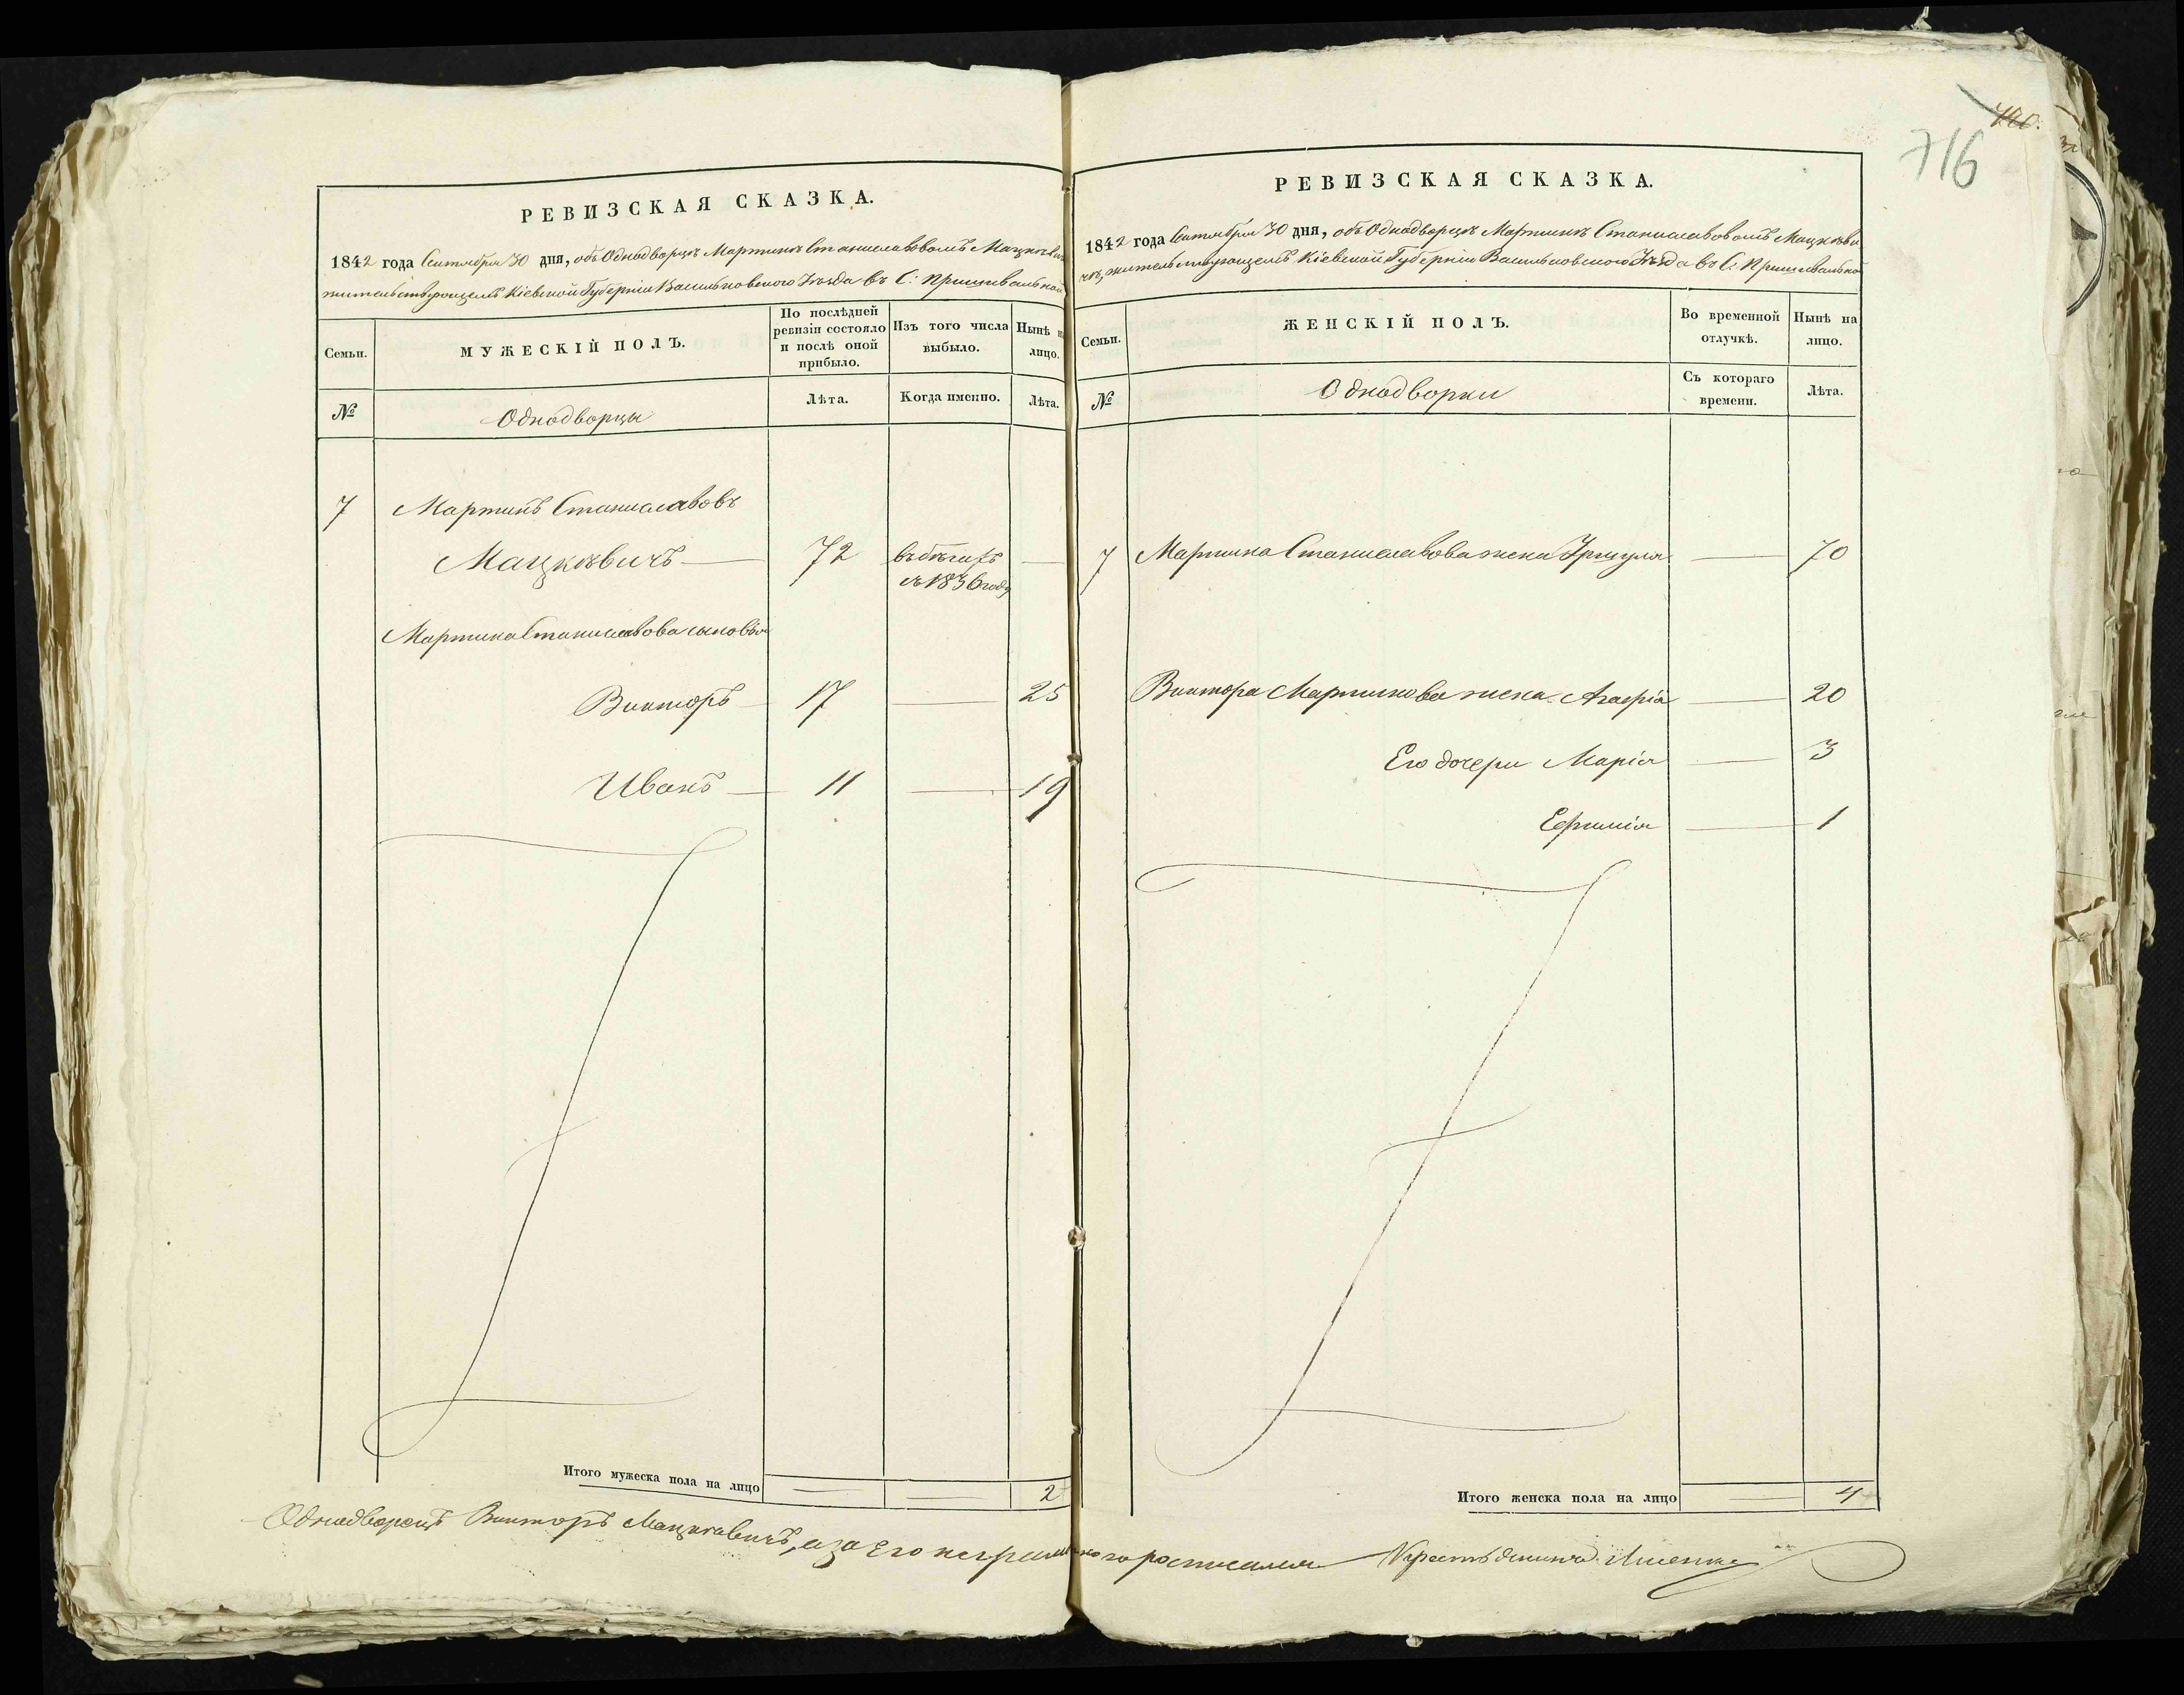 РЕВИЗСКАЯ СКАЗКА.
1842 года Сентября 30 дня, объ Однодворцѣ Мартинѣ Станиславовомъ Мацкѣвичѣ
жительствующемъ Кіевской Губерніи Васильковского Уѣзда въ С: Пришивальной
Семьи.
МУЖЕСКІЙ ПОЛЪ.
По послѣдней ревизіи состояло и послѣ оной прибыло.
Изъ того числа выбыло.
Нынѣ на лицо.
№
Однодворцы
Лѣта.
Когда именно.
Лѣта.
7 Мартинъ Станиславовъ
Мацкѣвичъ — 72 въ бѣгахъ —
съ 1836 году
Мартина Станиславова сыновья
Викторъ — 17 — 25
Иванъ — 11 — 19
Итого мужеска пола на лицо — — 2
716
РЕВИЗСКАЯ СКАЗКА.
1842 года Сентября 30 дня, объ Однодворцѣ Мартинѣ Станиславовомъ Мацкѣви
чѣ, жительствующемъ Кіевской Губерніи Васильковского Уѣзда въ С: Пришивальной
Семьи.
ЖЕНСКІЙ ПОЛЪ.
Во временной отлучкѣ.
Нынѣ на лицо.
№
Однодворки
Съ котораго времени.
Лѣта.
7 Мартина Станиславова жена Уршуля — 70
Виктора Мартинова жена Агафія — 20
Его дочери Марія — 3
Ефимія — 1
Итого женска пола на лицо — 4
Однодворецъ Викторъ Мацкевичъ, а за Его неграмотного росписался Крестьянинъ